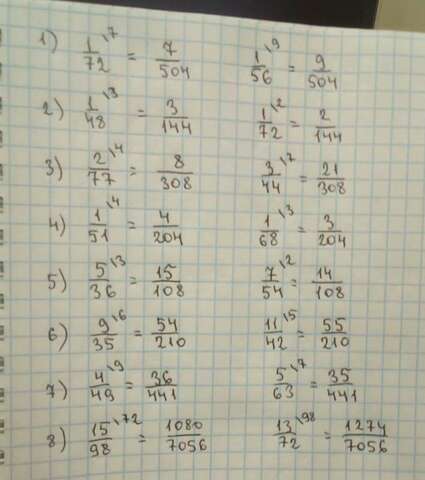 1) 1/72 \7 = 7/504   1/56 \9 = 9/504
2) 1/48 \3 = 3/144   1/72 \2 = 2/144
3) 2/77 \4 = 8/308   3/44 \7 = 21/308
4) 1/51 \4 = 4/204   1/68 \3 = 3/204
5) 5/36 \3 = 15/108   7/54 \2 = 14/108
6) 9/35 \6 = 54/210   11/42 \5 = 55/210
7) 4/49 \9 = 36/441   5/63 \7 = 35/441
8) 15/98 \72 = 1080/7056   13/72 \98 = 1274/7056